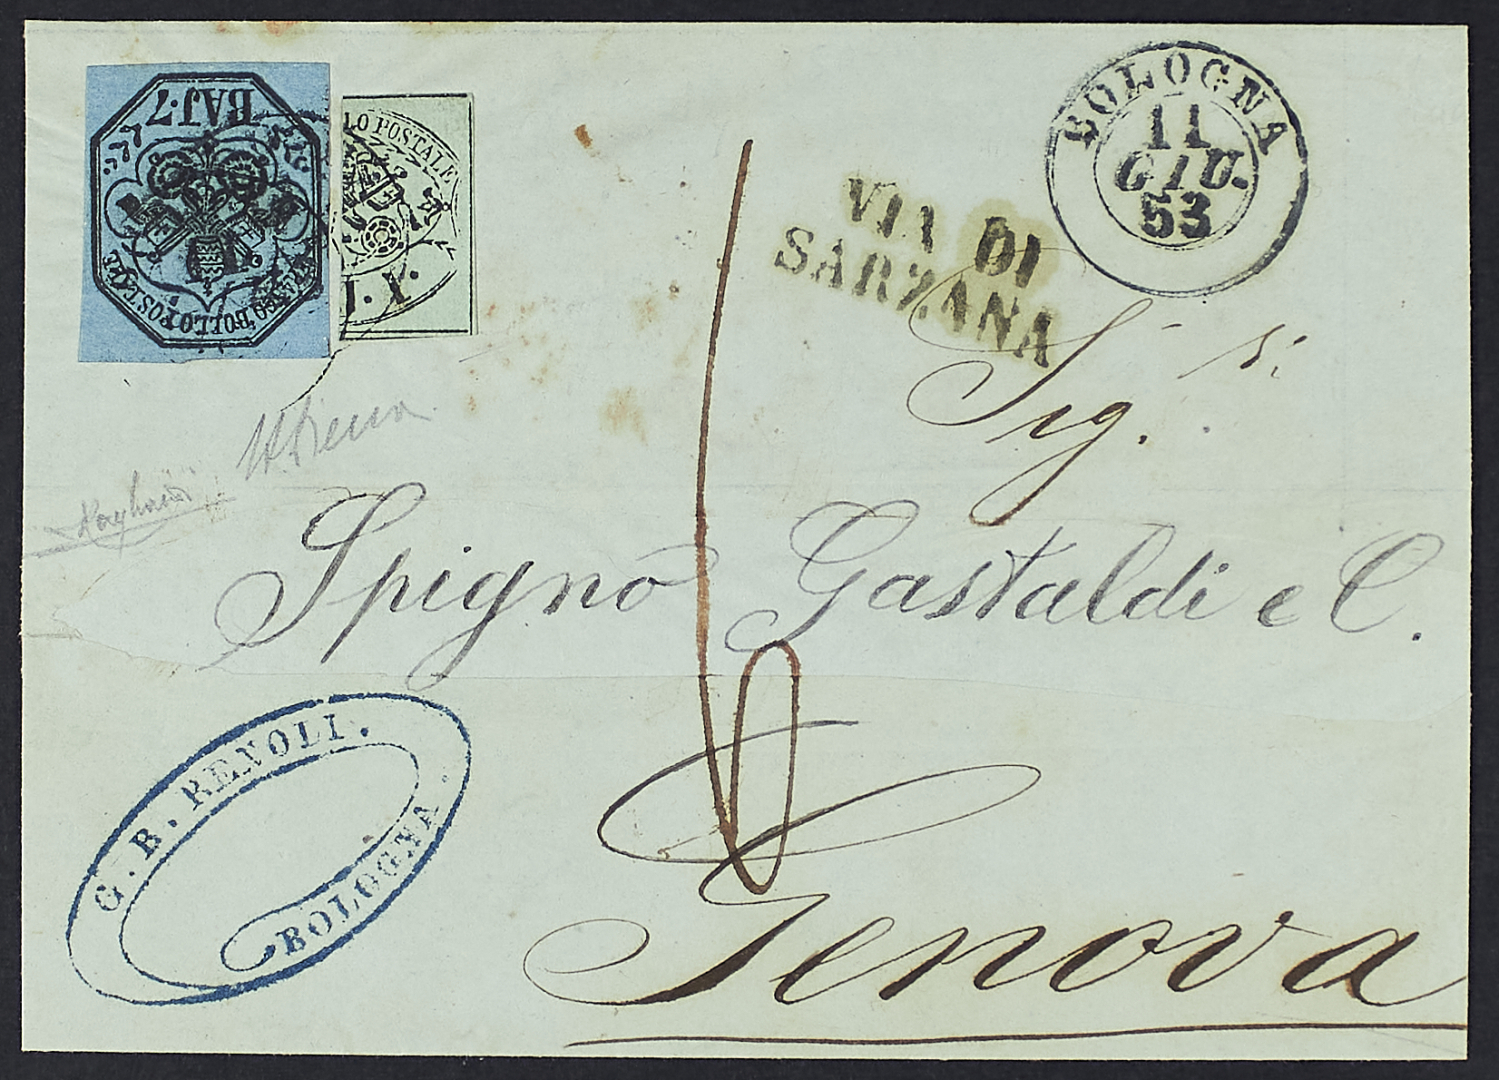 BAJ. 7
FRANCO BOLLO POSTALE
LO POSTALE
J. 1.
BOLOGNA
11
GIU.
53
VIA DI
SARZANA
Sig.
Spigno Gastaldi e C.
Genova
G. B. RENOLI.
BOLOGNA.